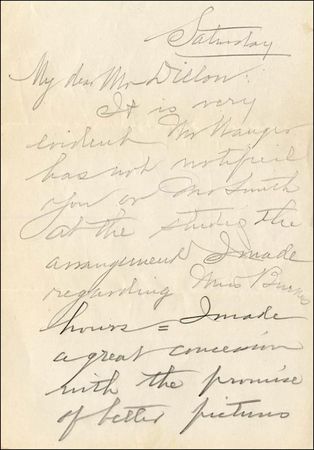 Saturday
My dear Mr Dillon:
It is very
evident Mr Wanger
has not notified
you or Mr Smith
at the studio, the
arrangement I made
regarding Miss Burke's
hours = I made
a great concession
with the promise
of better pictures